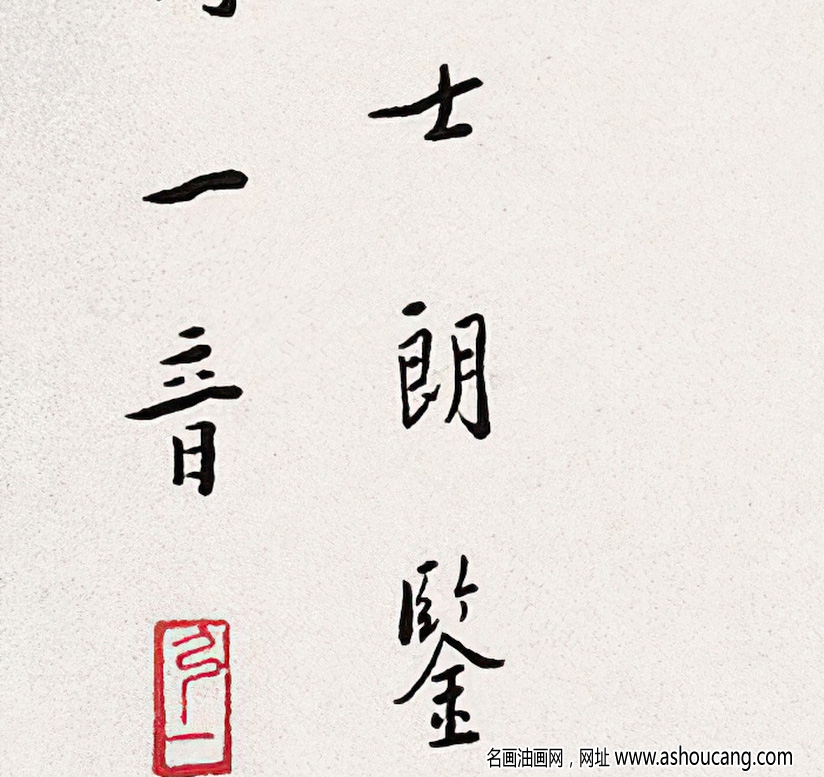 士朗鑒
一音
名画油画网，网址 www.ashoucang.com